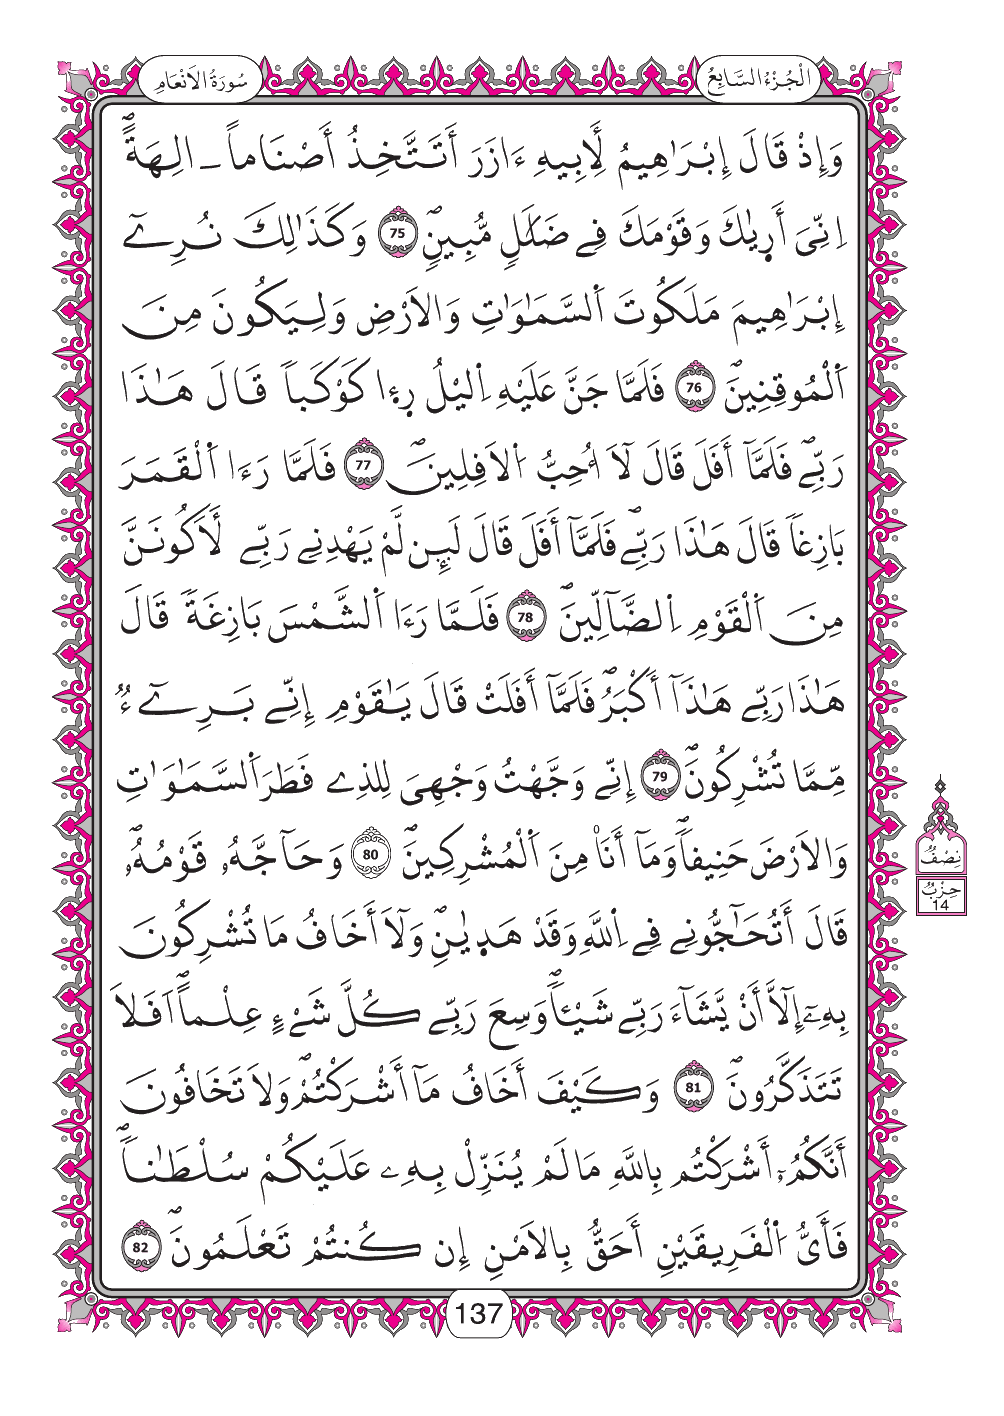 الْجُزْءُ السَّابِعُ
سُورَةُ الْاَنْعَامِ
وَإِذْ قَالَ إِبْرَٰهِيمُ لِأَبِيهِ ءَازَرَ أَتَتَّخِذُ أَصْنَاماً ـ الِهَةًۖ
اِنِّيَ أَر۪يٰكَ وَقَوْمَكَ فِے ضَلَٰلٖ مُّبِينٖۖ 75 وَكَذَٰلِكَ نُرِےٓ
إِبْرَٰهِيمَ مَلَكُوتَ اَ۬لسَّمَٰوَٰتِ وَالَارْضِ وَلِيَكُونَ مِنَ
اَ۬لْمُوقِنِينَۖ 76 فَلَمَّا جَنَّ عَلَيْهِ اِ۬ليْلُ ر۪ء۪ا كَوْكَباٗ قَالَ هَٰذَا
رَبِّےۖ فَلَمَّآ أَفَلَ قَالَ لَآ أُحِبُّ اُ۬لَافِلِينَۖ 77 فَلَمَّا رَءَا اَ۬لْقَمَرَ
بَازِغاٗ قَالَ هَٰذَا رَبِّےۖ فَلَمَّآ أَفَلَ قَالَ لَئِن لَّمْ يَهْدِنِے رَبِّے لَأَكُونَنَّ
مِنَ اَ۬لْقَوْمِ اِ۬لضَّآلِّينَۖ 78 فَلَمَّا رَءَا اَ۬لشَّمْسَ بَازِغَةٗ قَالَ
هَٰذَا رَبِّے هَٰذَآ أَكْبَرُۖ فَلَمَّآ أَفَلَتْ قَالَ يَٰقَوْمِ إِنِّے بَرِےٓءٞ
مِّمَّا تُشْرِكُونَۖ 79 إِنِّے وَجَّهْتُ وَجْهِيَ لِلذِے فَطَرَ اَ۬لسَّمَٰوَٰتِ
وَالَارْضَ حَنِيفاٗۖ وَمَآ أَنَا۠ مِنَ اَ۬لْمُشْرِكِينَۖ 80 وَحَآجَّهُۥ قَوْمُهُۥۖ
قَالَ أَتُحَٰٓجُّونِے فِے اِ۬للَّهِ وَقَدْ هَد۪يٰنِۖ وَلَآ أَخَافُ مَا تُشْرِكُونَ
بِهِۦٓ إِلَّآ أَنْ يَّشَآءَ رَبِّے شَيْـٔاٗۖ وَسِعَ رَبِّے كُلَّ شَےْءٍ عِلْماًۖ اَفَلَا
تَتَذَكَّرُونَۖ 81 وَكَيْفَ أَخَافُ مَآ أَشْرَكْتُمْۖ وَلَا تَخَافُونَ
أَنَّكُمُۥٓ أَشْرَكْتُم بِاللَّهِ مَا لَمْ يُنَزِّلْ بِهِۦ عَلَيْكُمْ سُلْطَٰناٗۖ
فَأَيُّ اُ۬لْفَرِيقَيْنِ أَحَقُّ بِالَامْنِ إِن كُنتُمْ تَعْلَمُونَۖ 82
نِصْفُ
حِزْبُ
14
137